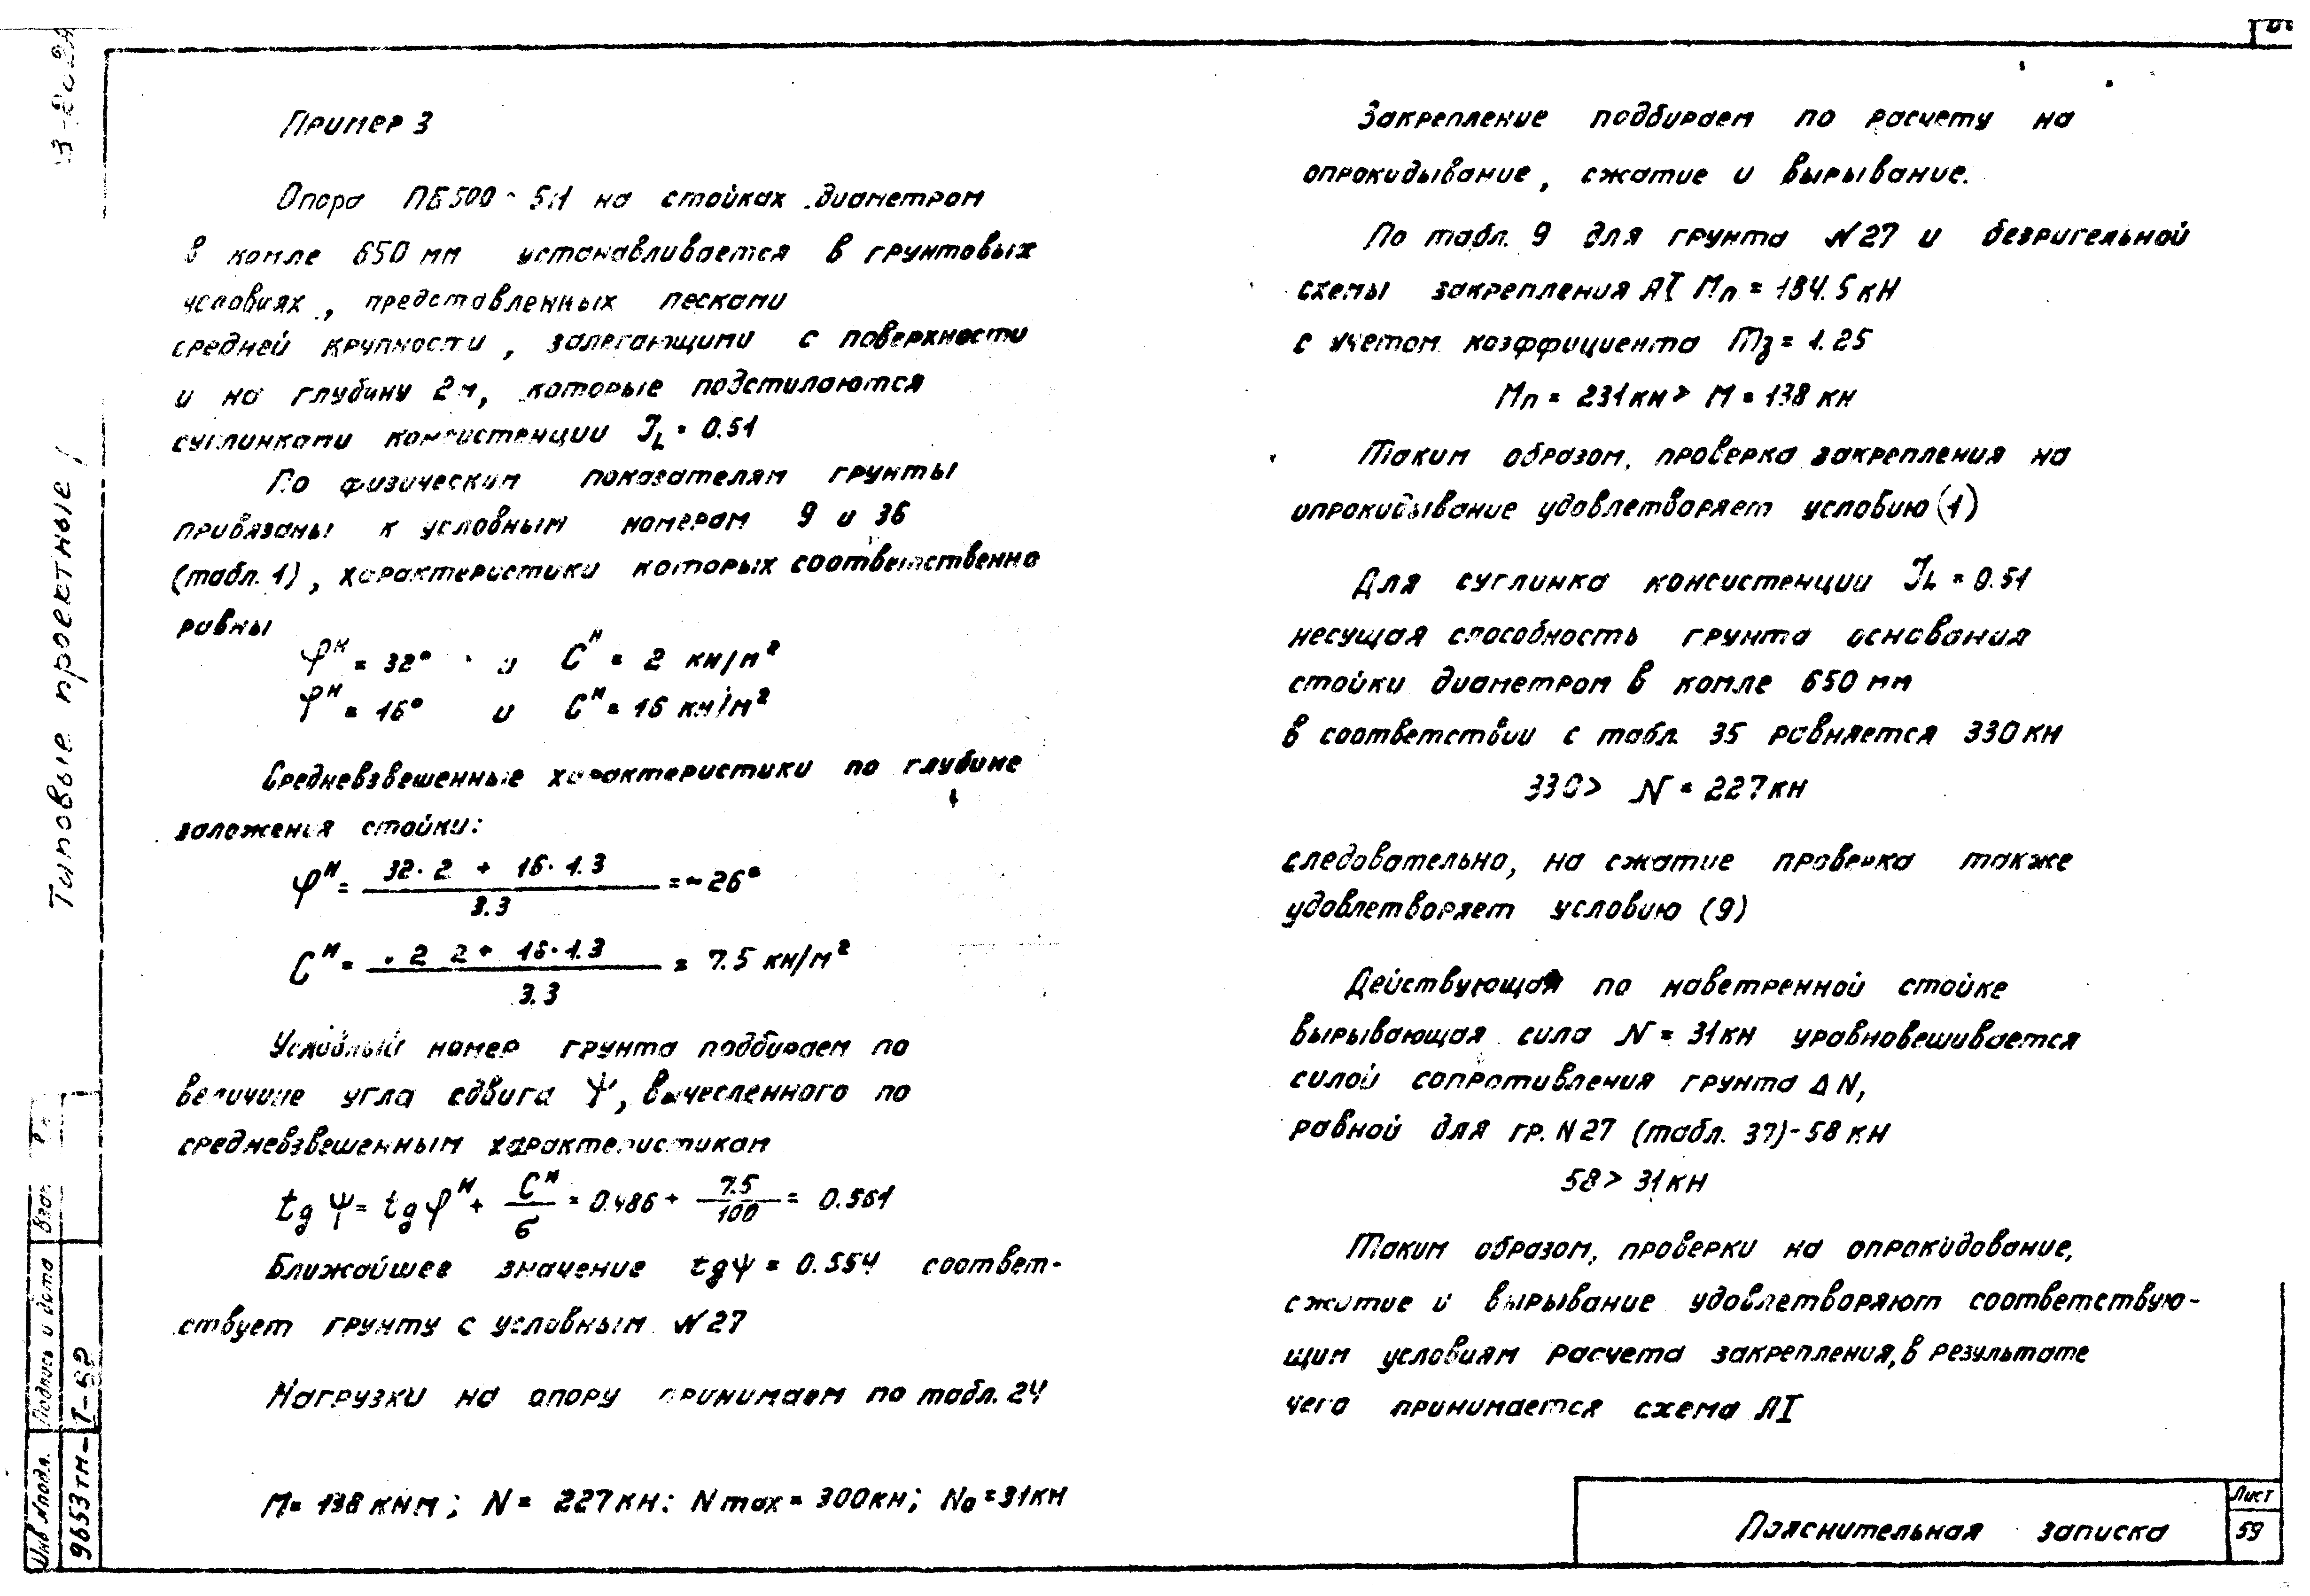 Пример 3
Опора ПБ500-5н1 на стойках диаметром
в комле 650 мм устанавливается в грунтовых
условиях, представленных песками
средней крупности, залегающими с поверхности
и на глубину 2м, которые подстилаются
суглинками консистенции JL = 0.51
По физическим показателям грунты
привязаны к условным номерам 9 и 36
(табл. 1), характеристики которых соответственно
равны
φᴴ = 32° и Cᴴ = 2 кн/м²
φᴴ = 16° и Cᴴ = 16 кн/м²
Средневзвешенные характеристики по глубине
заложения стойки:
φᴴ = (32·2 + 16·1.3) / 3.3 = ~26°
Cᴴ = (2 2 + 16·1.3) / 3.3 = 7.5 кн/м²
Условный номер грунта подбираем по
величине угла сдвига Ψ, вычесленного по
средневзвешенным характеристикам
tg Ψ = tg φᴴ + Cᴴ/б = 0.486 + 7.5/100 = 0.561
Ближайшее значение tgψ = 0.554 соответ-
ствует грунту с условным N27
Нагрузки на опору принимаем по табл. 24
M = 138 кнм; N = 227кн; Nmax = 300кн; No = 31кн
Закрепление подбираем по расчету на
опрокидывание, сжатие и вырывание.
По табл. 9 для грунта N27 и безригельной
схемы закрепления АI Мп = 184.5 кН
с учетом коэффициента mз = 1.25
Мп = 231кн > М = 138 кн
Таким образом, проверка закрепления на
опрокидывание удовлетворяет условию (1)
Для суглинка консистенции JL = 0.51
несущая способность грунта основания
стойки диаметром в комле 650 мм
в соответствии с табл. 35 равняется 330кн
330 > N = 227кн
следовательно, на сжатие проверка также
удовлетворяет условию (9)
Действующая по наветренной стойке
вырывающая сила N = 31кн уравновешивается
силой сопротивления грунта Δ N,
равной для гр. N27 (табл. 37)-58 кН
58 > 31кн
Таким образом, проверки на опрокидование,
сжатие и вырывание удовлетворяют соответствую-
щим условиям расчета закрепления, в результате
чего принимается схема АI
Пояснительная записка
Лист
59
Типовые проектные
Инв N подл.
Подпись и дата
Взам
9653тм-I-59